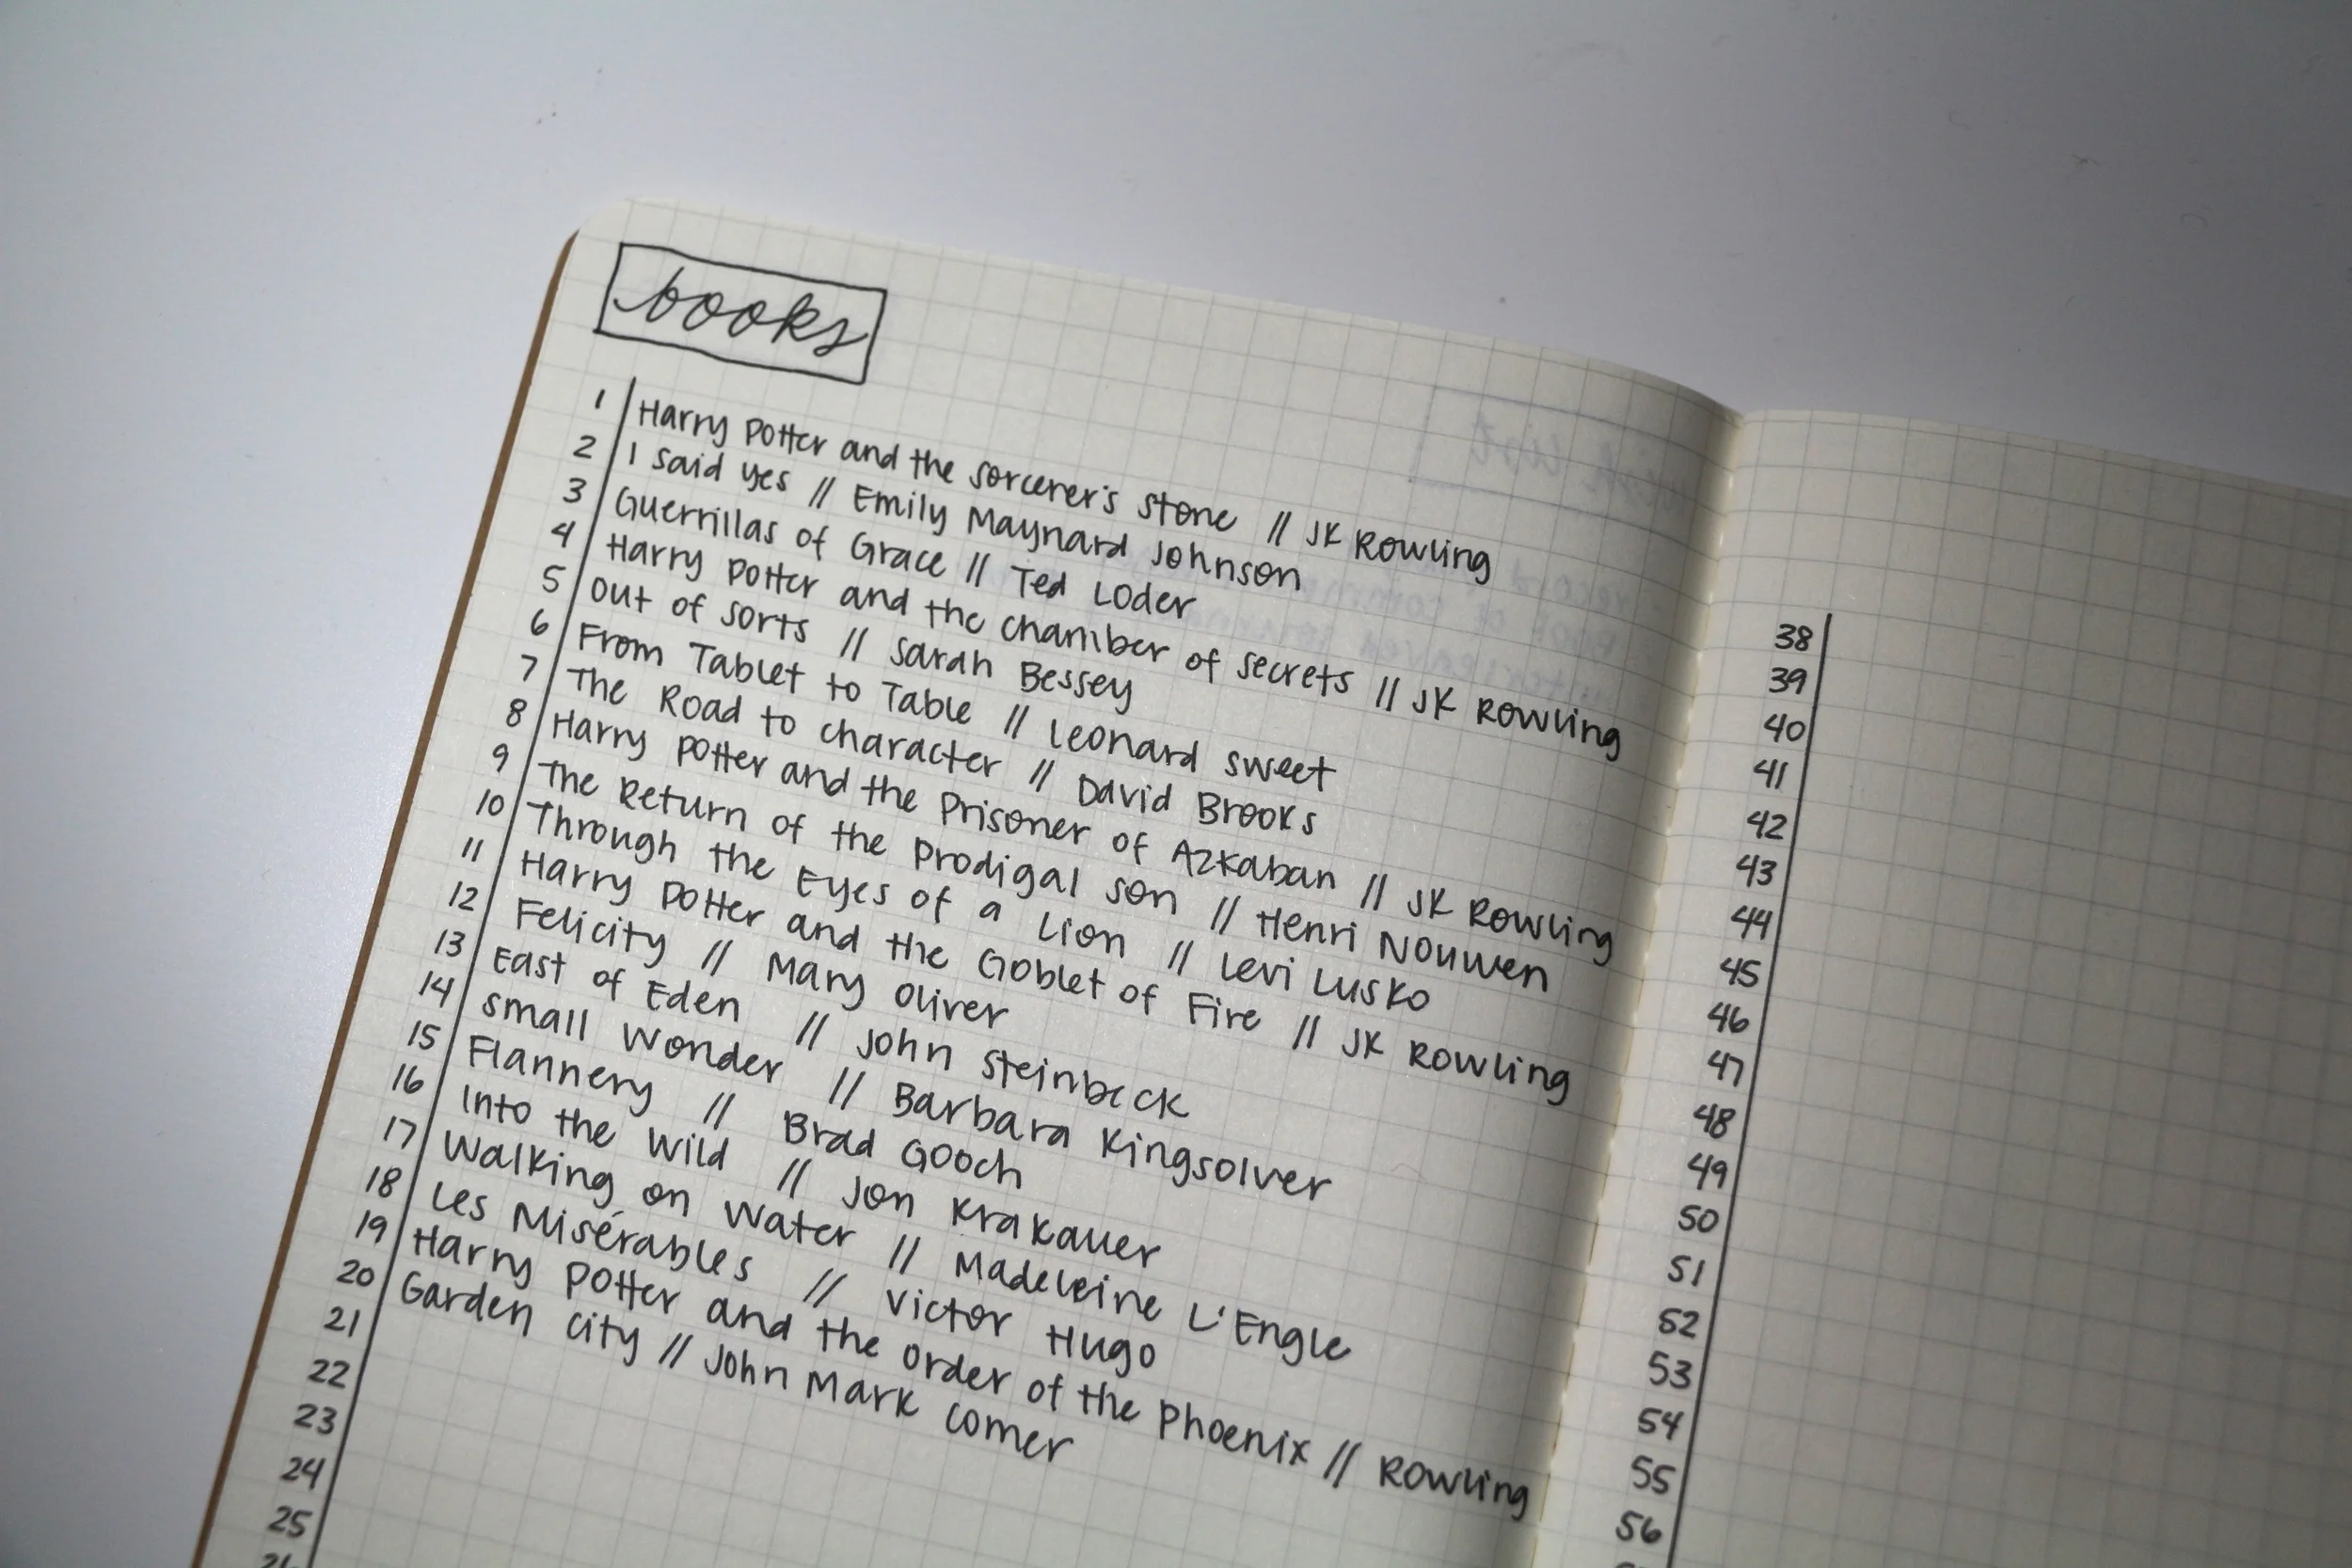 books
1 Harry Potter and the Sorcerer's Stone // JK Rowling
2 I Said Yes // Emily Maynard Johnson
3 Guerrillas of Grace // Ted Loder
4 Harry Potter and the Chamber of Secrets // JK Rowling
5 Out of Sorts // Sarah Bessey
6 From Tablet to Table // Leonard Sweet
7 The Road to Character // David Brooks
8 Harry Potter and the Prisoner of Azkaban // JK Rowling
9 The Return of the Prodigal Son // Henri Nouwen
10 Through the Eyes of a Lion // Levi Lusko
11 Harry Potter and the Goblet of Fire // JK Rowling
12 Felicity // Mary Oliver
13 East of Eden // John Steinbeck
14 Small Wonder // Barbara Kingsolver
15 Flannery // Brad Gooch
16 Into the Wild // Jon Krakauer
17 Walking on Water // Madeleine L'Engle
18 Les Misérables // Victor Hugo
19 Harry Potter and the Order of the Phoenix // Rowling
20 Garden City // John Mark Comer
21
22
23
24
25
38
39
40
41
42
43
44
45
46
47
48
49
50
51
52
53
54
55
56